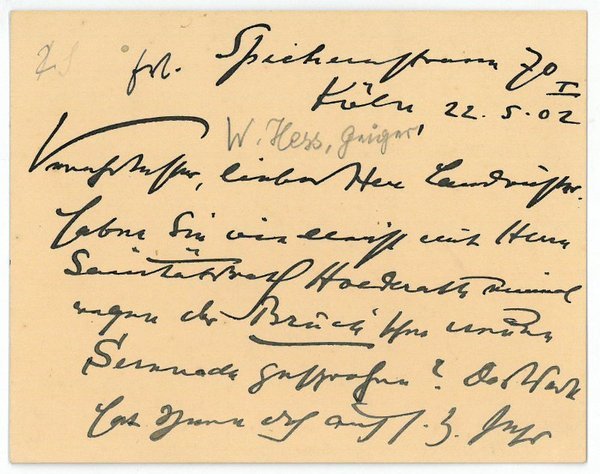 frl. Spichernstrasse 70 I
Köln 22. 5. 02
W. Hess, Geiger
Verehrtester, lieber Herr Landrichter.
Haben Sie vielleicht mit Herrn
Sanitätsrath Hoederath einmal
wegen der Brückschen neuen
Serenade gesprochen? Das Werk
hat Ihnen doch auch s. Z. sehr